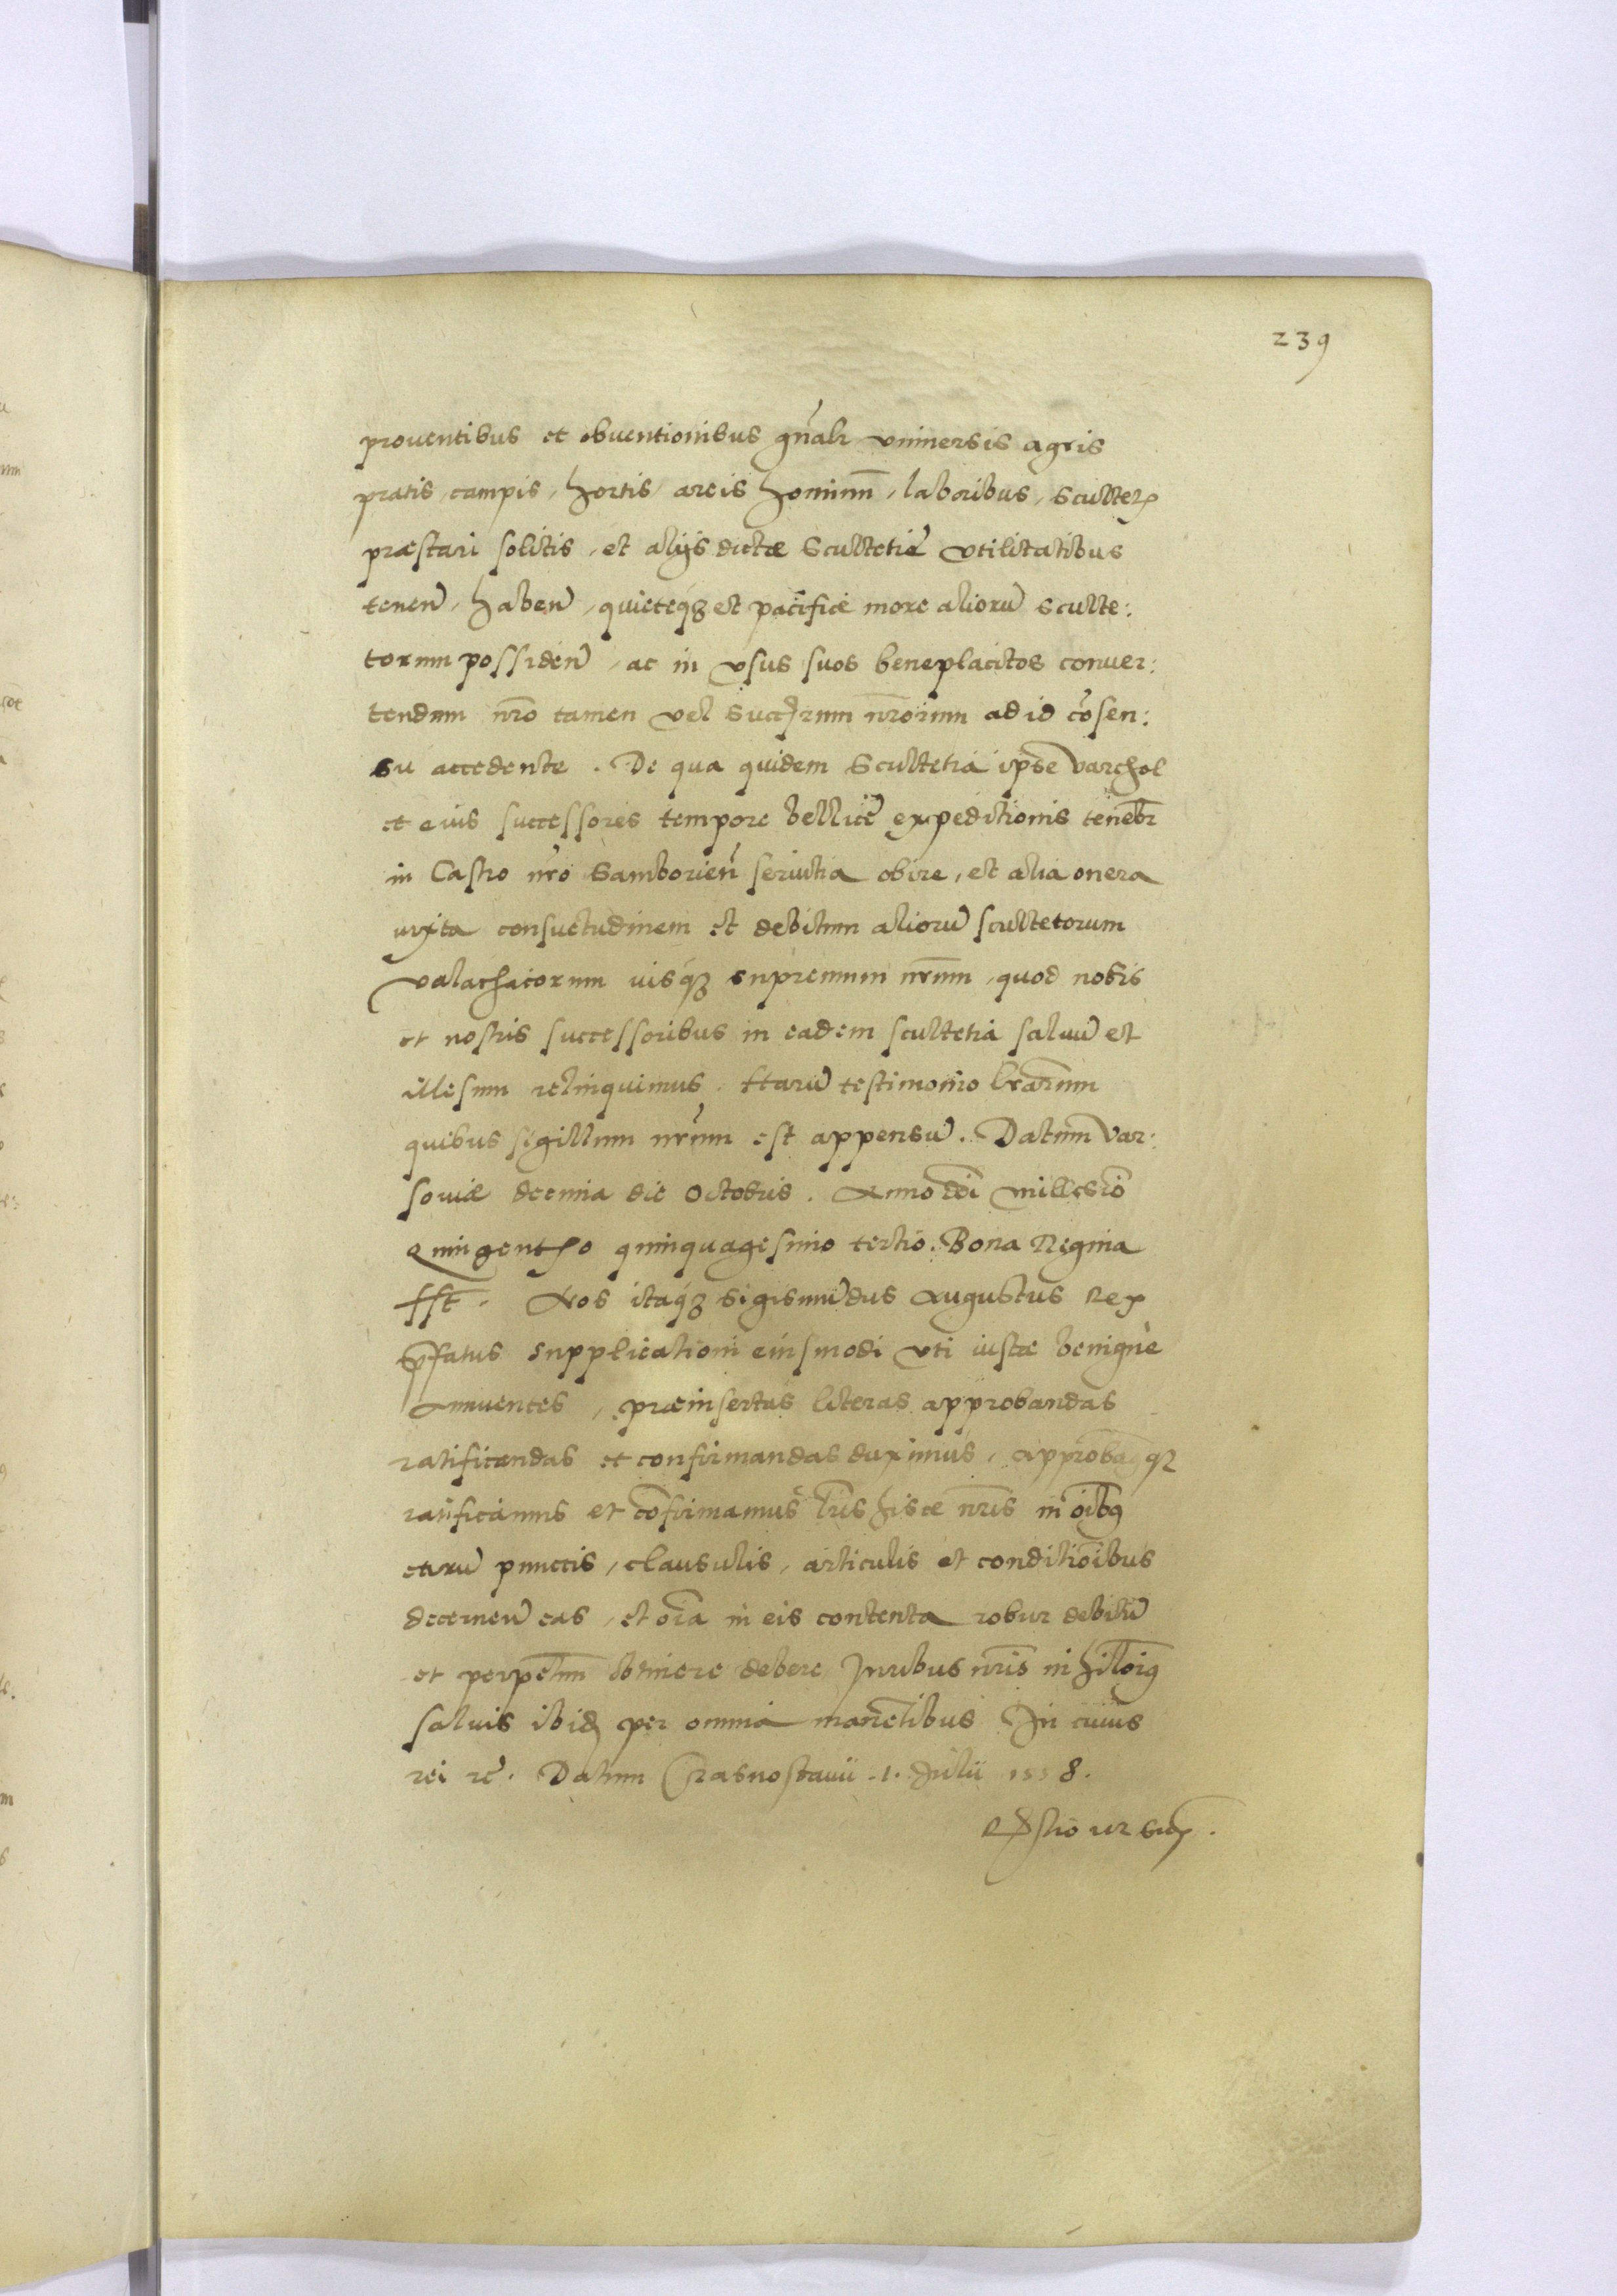 239
proventibus et obventionibus gn̄alr vniuersis agris
pratis, campis, hortis, areis hominū, laboribus, Sculteto
præstari solitis, et alijs dictæ Scultetiæ vtilitatibus
tenen̄, haben̄, quieteq3 et pacifice more alioru̅ sculte:
torum possiden̄, ac in vsus suos beneplacitos conuer:
tendum nr̄o tamen vel Succ̄rum nr̄orum ad id cōsen:
su accedente. De qua quidem Scultetia ipse Varchol
et eius successores tempore bellicę expeditionis tenebr̄
in Castro nr̄o Samborien̄ seruitia obire, et alia onera
iuxta consuetudinem et debitum alioru̅ scultetorum
valachicorum iusq3 supremum nr̄um, quod nobis
et nostris successoribus in eadem scultetia saluu̅ et
illesum relinquimus. Haru̅ testimonio lr̄arum
quibus sigillum nr̄um est appensu̅. Datum Var:
souiæ decima die Octobris. Anno dn̄i millesīo
Quingentho quinquagesimo tertio. Bona Regina
sst. Nos itaq3 Sigismu̅dus Augustus Rex
p̄fatus supplicationi eiusmodi vti iustæ benignè
annuentes, præinsertas literas approbandas
ratificandas et confirmandas duximus, approbamq3
ratificamus et cōfirmamus lr̄is hisce nr̄is in oībus
earu̅ punctis, clausulis, articulis et conditiōibus
decernen̄ eas, et oīa in eis contenta robur debitu̅
et perpetuū obtinere debere Juribus nr̄is nihilōiq
saluis ibid̄ per omnia manētibus In cuius
rei rc̄. Datum Crasnostauii .1. Julii 1558.